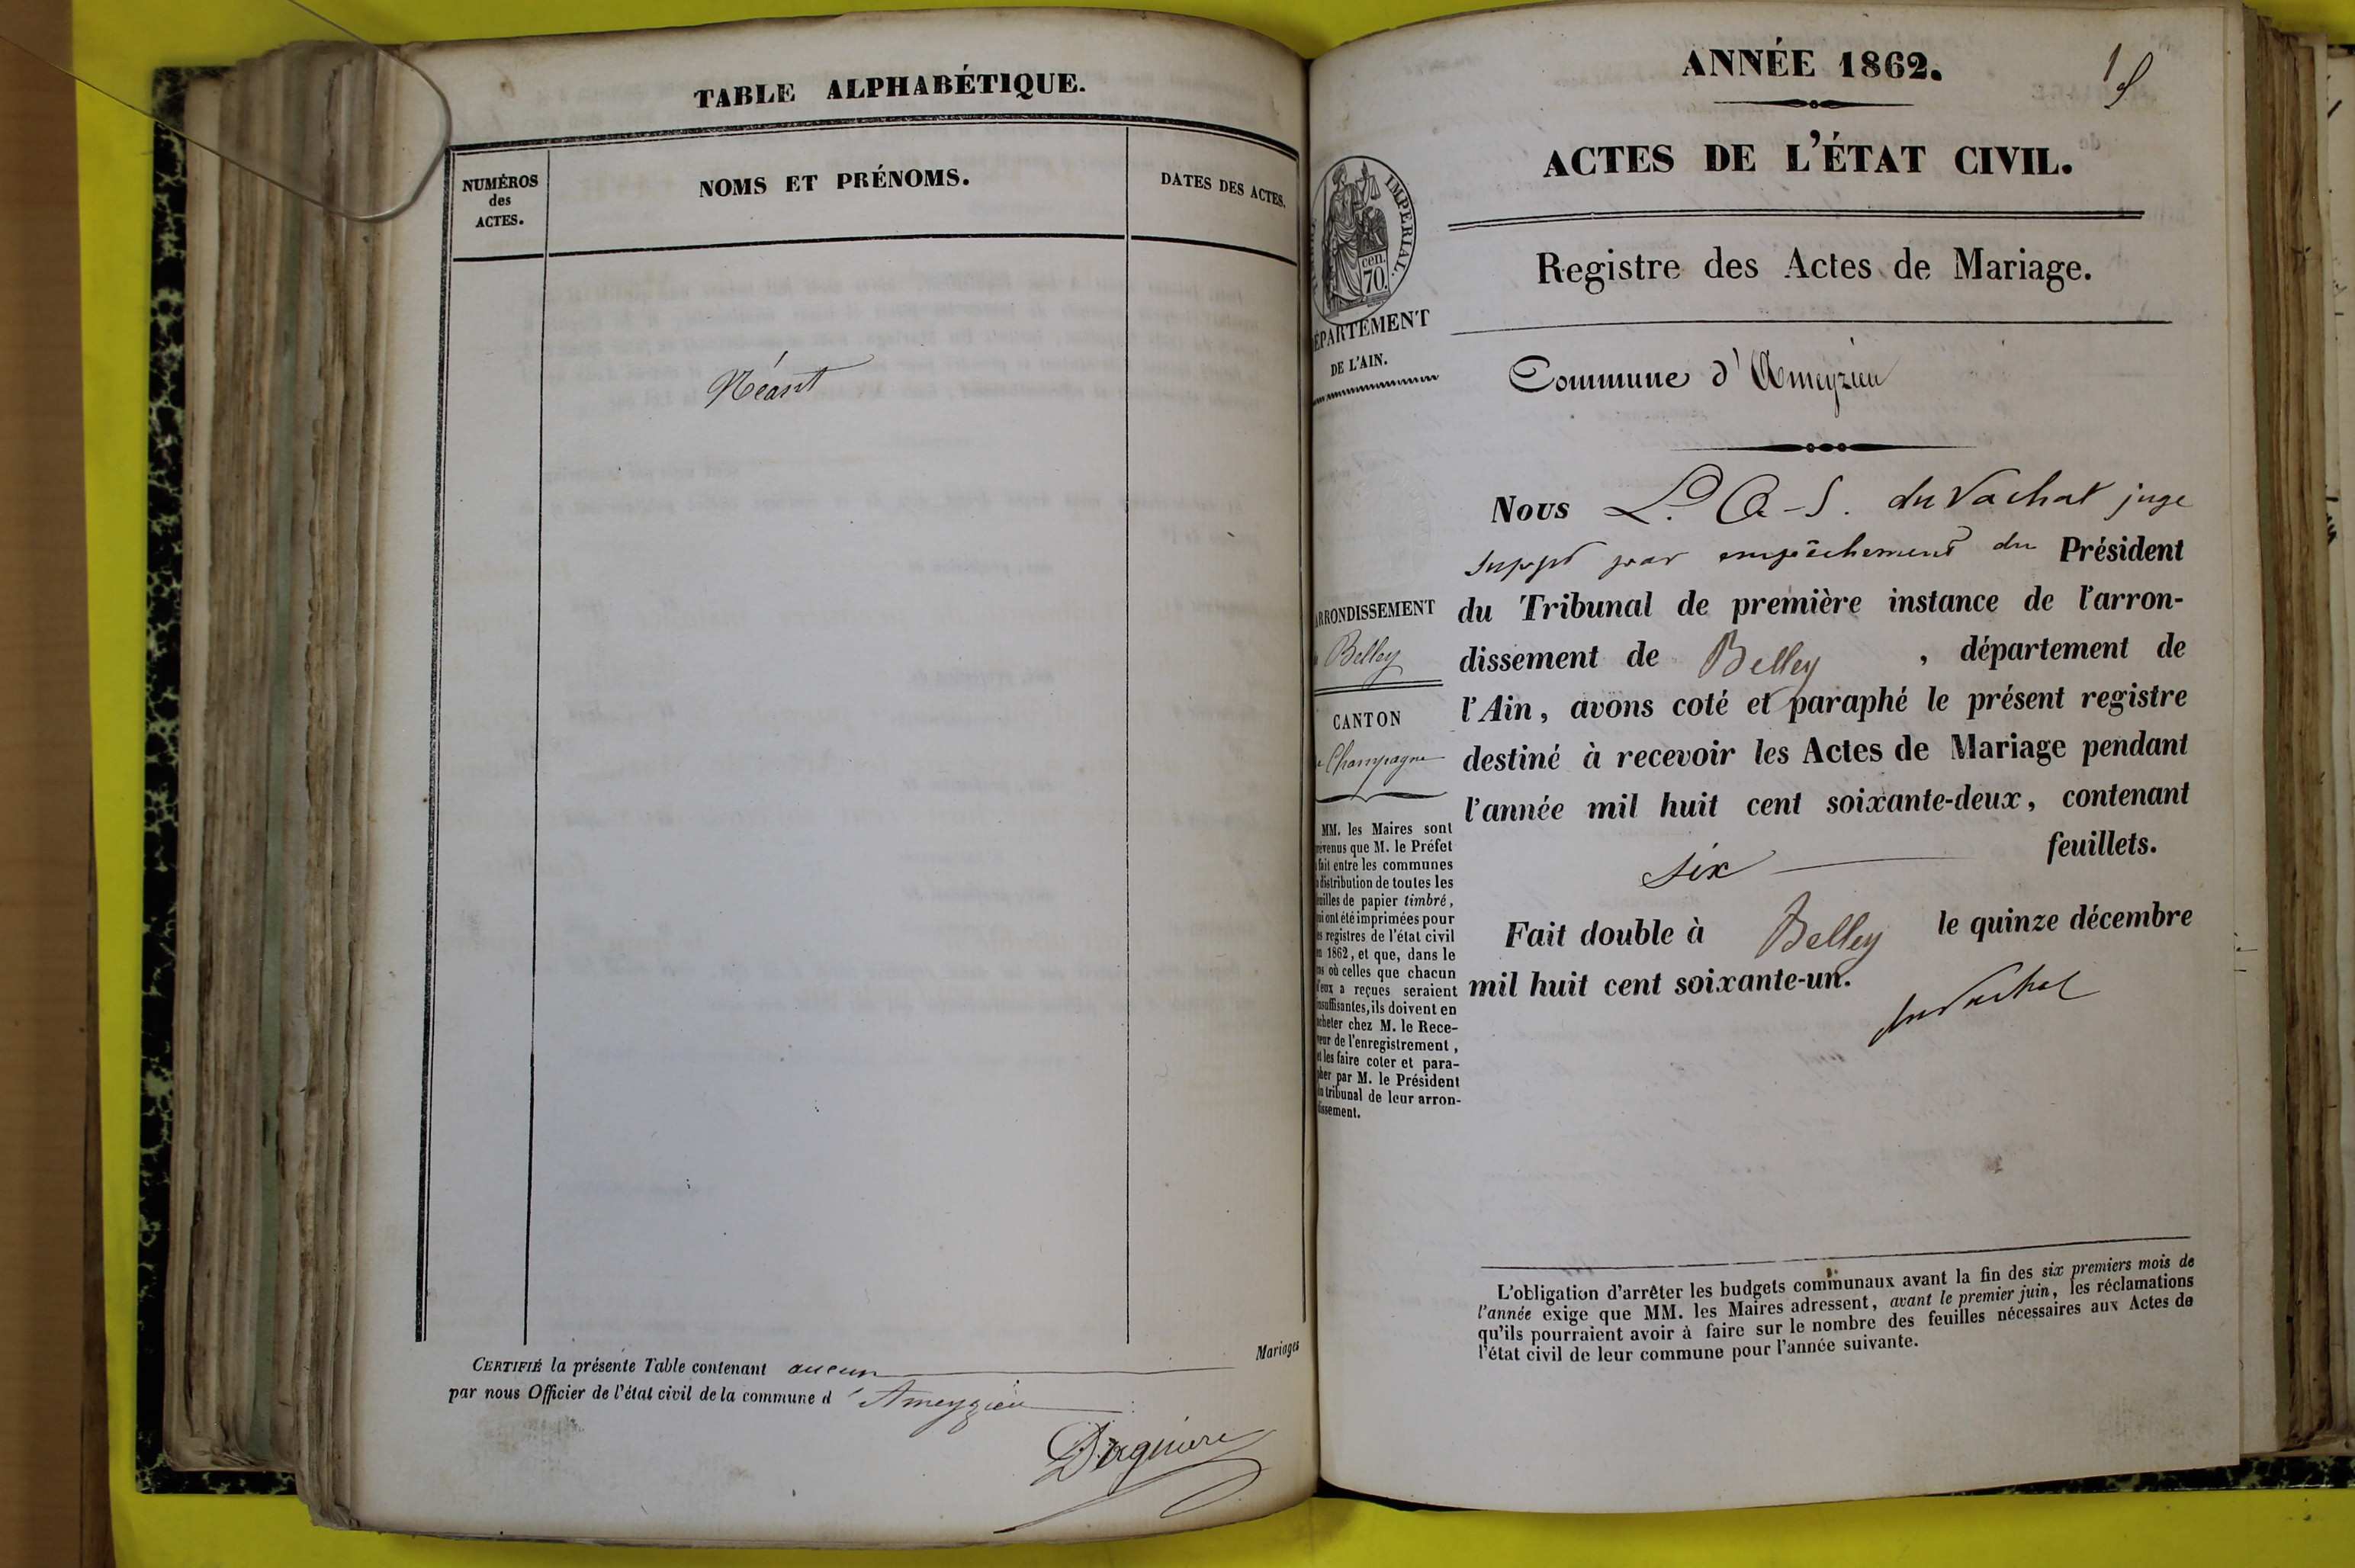 TABLE ALPHABÉTIQUE.
NUMÉROS
des
ACTES.
NOMS ET PRÉNOMS.
DATES DES ACTES.
Néant
CERTIFIÉ la présente Table contenant aucun Mariages
par nous Officier de l'état civil de la commune d'Ameyzieu
ANNÉE 1862.
1
ACTES DE L'ÉTAT CIVIL.
IMPERIAL.
cen.
70.
Registre des Actes de Mariage.
DÉPARTEMENT
DE L'AIN.
Commune d'Ameyzieu
Nous L. A-S. du Vachat juge
suppt par empêchement du Président
du Tribunal de première instance de l'arron-
dissement de Belley, département de
l'Ain, avons coté et paraphé le présent registre
destiné à recevoir les Actes de Mariage pendant
l'année mil huit cent soixante-deux, contenant
six feuillets.
Fait double à Belley le quinze décembre
mil huit cent soixante-un.
du Vachat
ARRONDISSEMENT
Belley
CANTON
Champagne
MM. les Maires sont
prévenus que M. le Préfet
a fait entre les communes
la distribution de toutes les
feuilles de papier timbré,
qui ont été imprimées pour
les registres de l'état civil
en 1862, et que, dans le
cas où celles que chacun
d'eux a reçues seraient
insuffisantes, ils doivent en
acheter chez M. le Rece-
veur de l'enregistrement,
et les faire coter et para-
pher par M. le Président
du tribunal de leur arron-
dissement.
L'obligation d'arrêter les budgets communaux avant la fin des six premiers mois de
l'année exige que MM. les Maires adressent, avant le premier juin, les réclamations
qu'ils pourraient avoir à faire sur le nombre des feuilles nécessaires aux Actes de
l'état civil de leur commune pour l'année suivante.